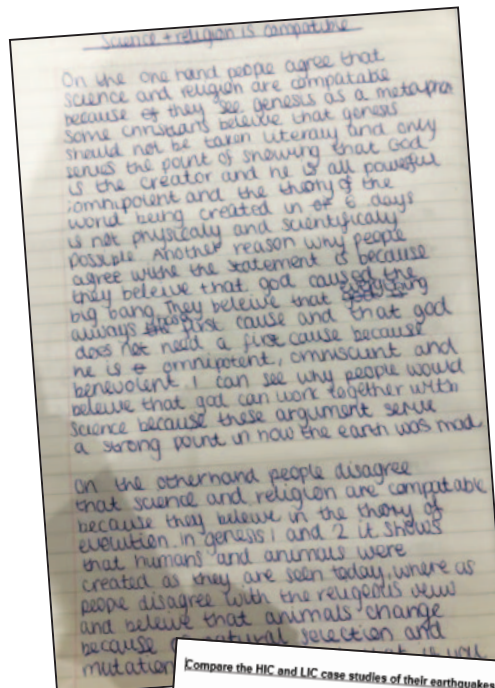 Science + religion is compatable
On the one hand people agree that
science and religion are compatable
because they see genesis as a metaphor
some christians beleive that genesis
should not be taken literaly and only
serves the point of showing that God
is the creator and he is all powerful
omnipotent and the theory of the
world being created in 6 days
is not physicaly and scientificaly
possible Another reason why people
agree withe the statement is because
they beleive that god caused the
big bang. They beleive that
always first cause and that god
does not need a first cause because
he is omnipotent, omniscunt and
benevolent. I can see why people would
beleive that god can work together with
science because these argument serve
a strong point in how the earth was mad
On the otherhand people disagree
that science and religion are compatable
because they beleive in the theory of
evolution. in genesis 1 and 2 it shows
that humans and animals were
created as they are seen today, where as
people disagree with the religeous veiw
and beleive that animals change
because of natural selection and
mutation
Compare the HIC and LIC case studies of their earthquakes